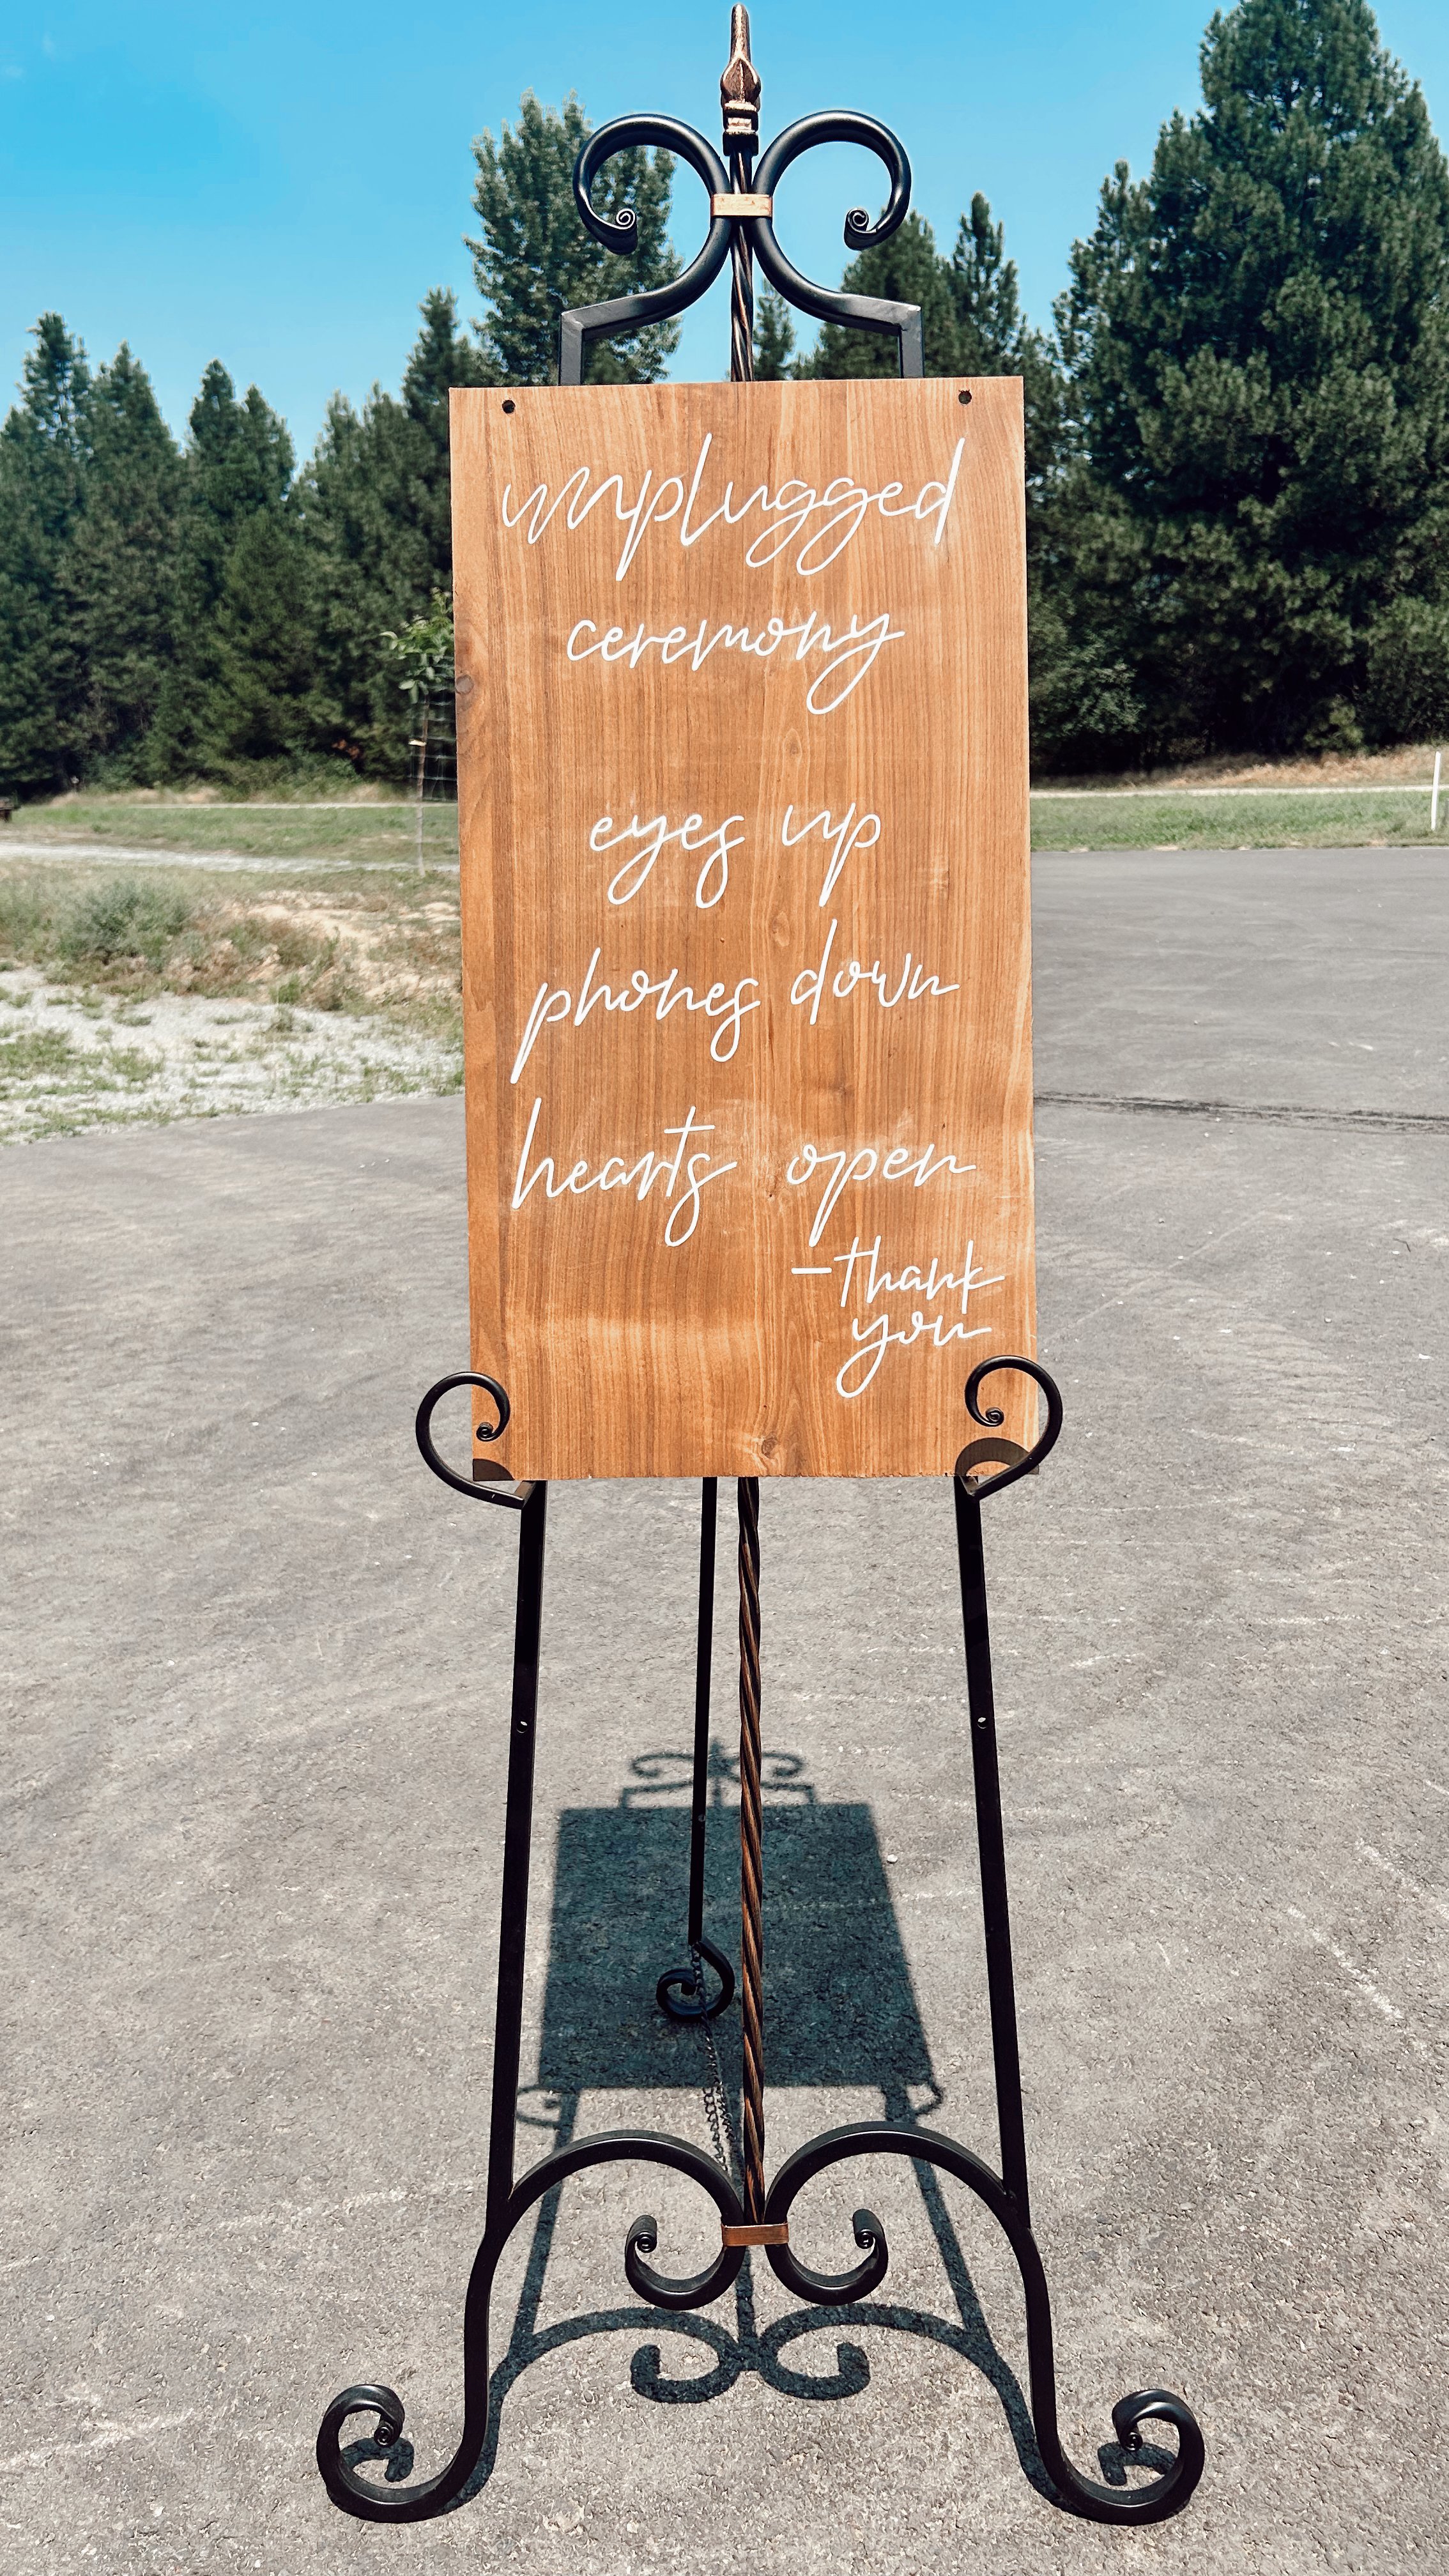 unplugged
ceremony
eyes up
phones down
hearts open
-thank
you